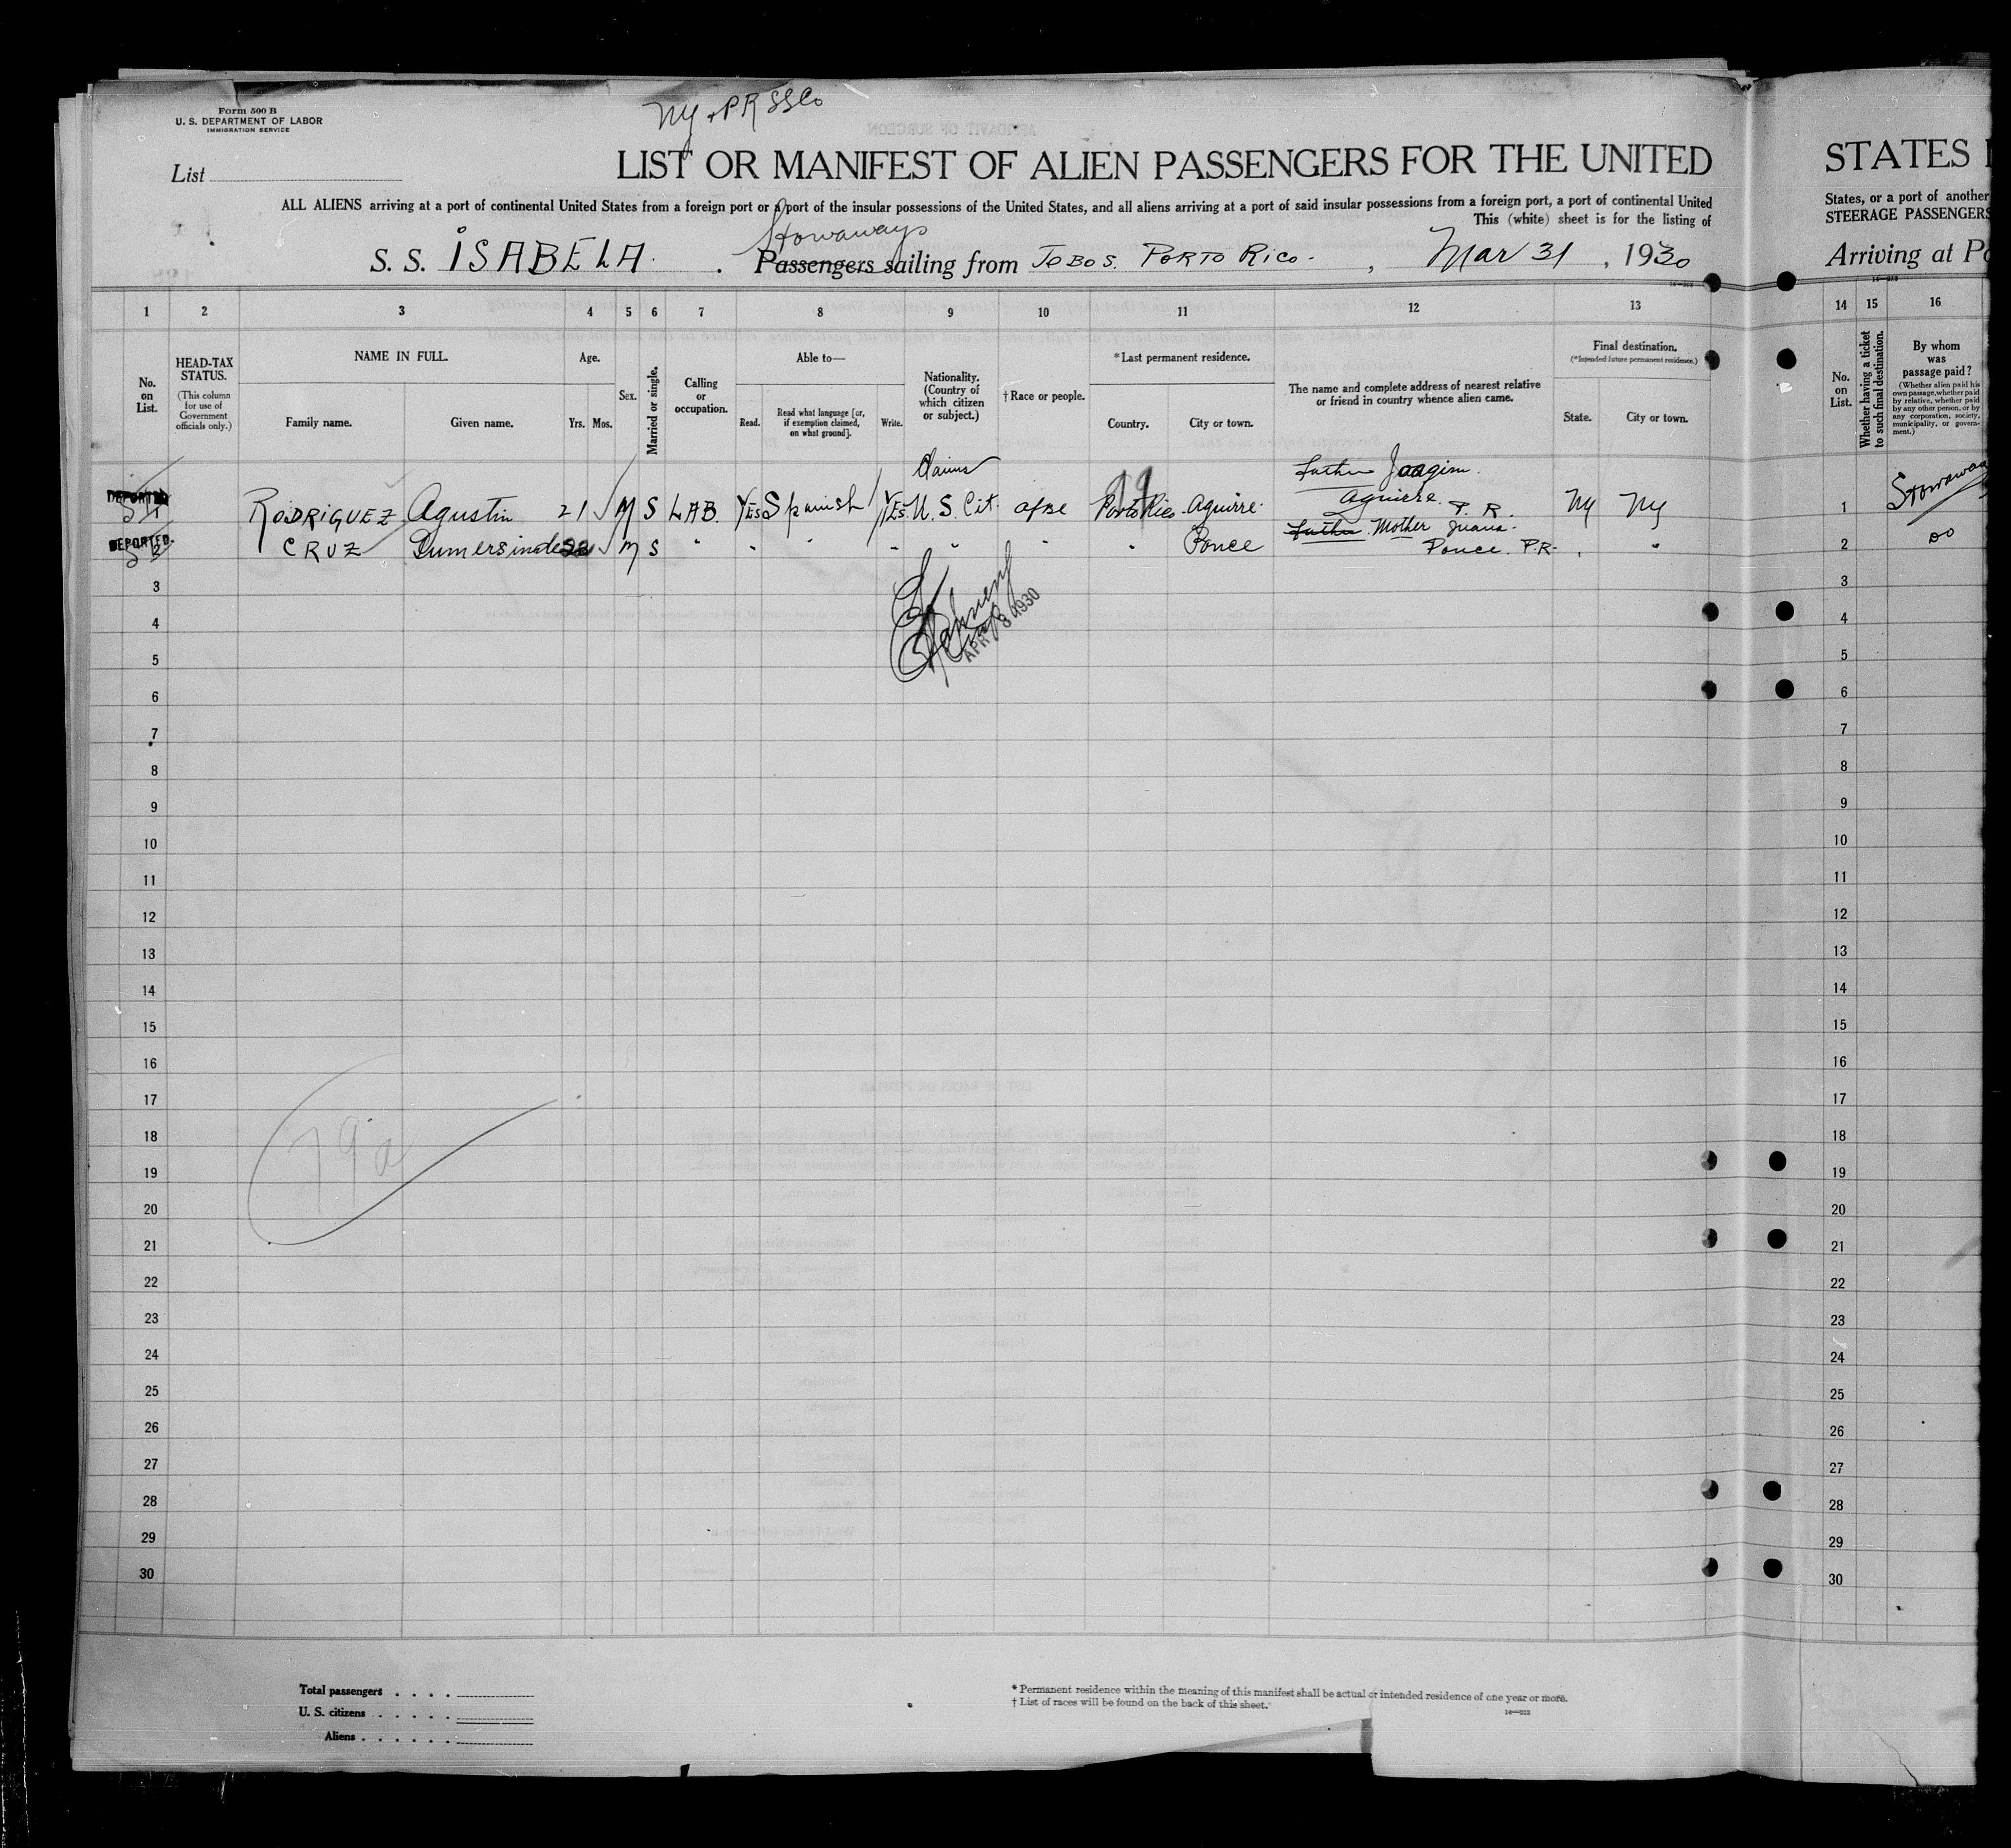 Form 500 B
U. S. DEPARTMENT OF LABOR
IMMIGRATION SERVICE
NY & PR SSCo
List
LIST OR MANIFEST OF ALIEN PASSENGERS FOR THE UNITED
ALL ALIENS arriving at a port of continental United States from a foreign port or a port of the insular possessions of the United States, and all aliens arriving at a port of said insular possessions from a foreign port, a port of continental United
This (white) sheet is for the listing of
Stowaways
S. S. ISABELA. Passengers sailing from JOBOS. PORTO RICO. , Mar 31 , 1930
1 2 3 4 5 6 7 8 9 10 11 12 13
No. on List.
HEAD-TAX STATUS.
(This column for use of Government officials only.)
NAME IN FULL.
Family name. Given name.
Age.
Yrs. Mos.
Sex.
Married or single.
Calling or occupation.
Able to—
Read. Read what language [or, if exemption claimed, on what ground]. Write.
Nationality. (Country of which citizen or subject.)
†Race or people.
*Last permanent residence.
Country. City or town.
The name and complete address of nearest relative or friend in country whence alien came.
Final destination.
(*Intended future permanent residence.)
State. City or town.
Claims
Father Joaqim.
DEPORTED
1 RODRIGUEZ Agustin 21 M S LAB. YES Spanish YES U. S. Cit. afbe Porto Rico Aguirre. Aguirre P. R. NY NY
DEPORTED.
2 CRUZ Gumersindo M S " " " " " " " Ponce Father Mother Juana. Ponce. P.R. " "
APR 8 1930
3
4
5
6
7
8
9
10
11
12
13
14
15
16
17
18
19
20
21
22
23
24
25
26
27
28
29
30
79a
Total passengers
U. S. citizens
Aliens
* Permanent residence within the meaning of this manifest shall be actual or intended residence of one year or more.
† List of races will be found on the back of this sheet.
STATES
States, or a port of another
STEERAGE PASSENGERS
Arriving at Po
14 15 16
No. on List.
Whether having a ticket to such final destination.
By whom was passage paid?
(Whether alien paid his own passage, whether paid by relative, whether paid by any other person, or by any corporation, society, municipality, or government.)
1 Stowaway
2 DO
3
4
5
6
7
8
9
10
11
12
13
14
15
16
17
18
19
20
21
22
23
24
25
26
27
28
29
30